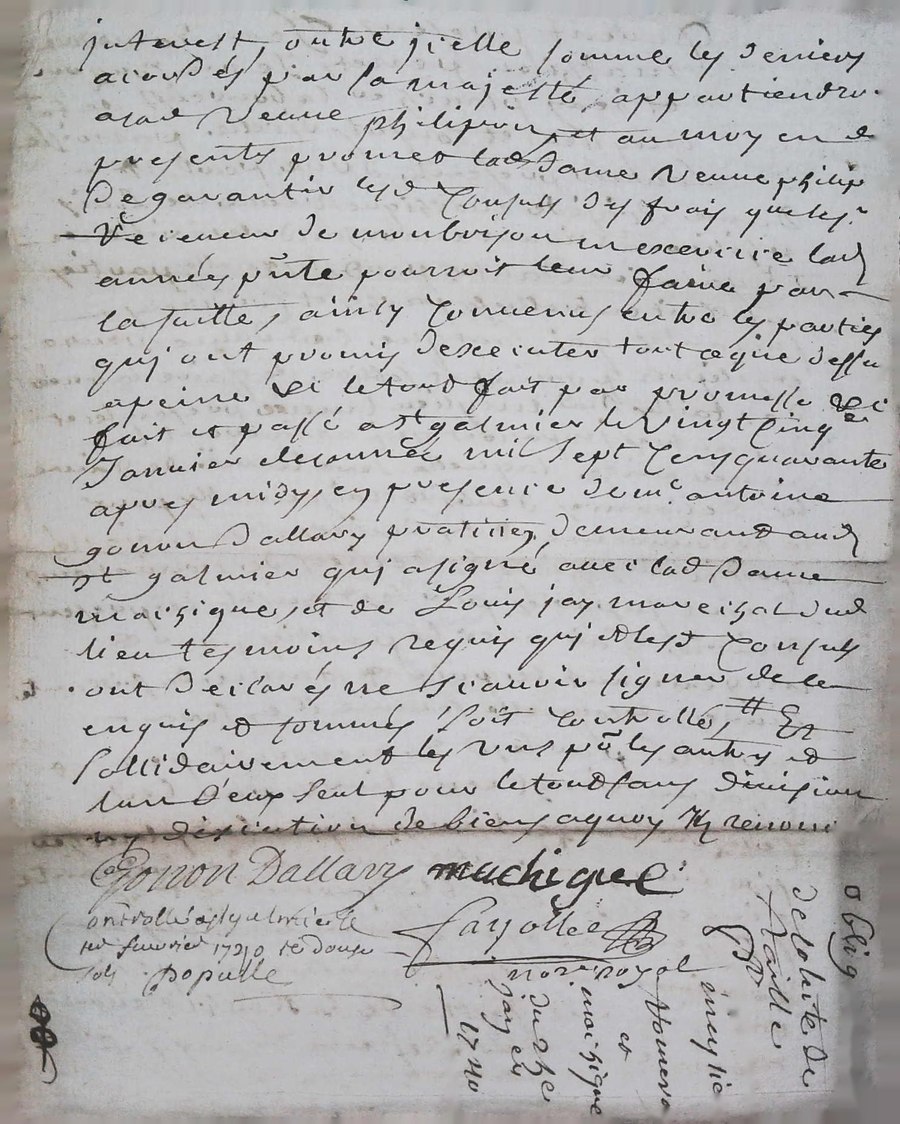 interest, outre jcelle somme les deniers
acordés par sa majesté, appartiendro.
a lad veuve philipon, et au moyen d
presents promet lad dame veuve philip
De garantir lesd Consuls des frais que les.r
Receveur de monbrison en exercice lad
année pnte pourroit leur faire pour
la taille, ainsy Convenus entre les parties
qui ont promis dexecuter tout ce que dessu
a peine &c le tout fait par promesse &c
fait et passé a st galmier le Vingt Cinq
Janvier de lannée mil sept Cens quarante
apres midy, en presence de me. antoine
gonon Dallary praticien, demeurant aud
st galmier qui a signé avec lad Dame
machigue, et de Louis jay marechal dud
lieu tesmoins requis qui et lesd Consuls
ont déclarés ne scavoir signer de ce
enquis et sommés soit Controllé, tt Et
sollidairement les uns pr. les autres et
lun d'eux seul pour le tout sans division
ny dis[...]tion de biens a quoy ils renonc
Gonon Dallary machigue
Controllé a st galmier le
fevrier 1740 Re douze
sols Populle
fayolle
nore. royal
oblig
de la dette de
taille
pr
et
machigue
du 25e
janer
1740